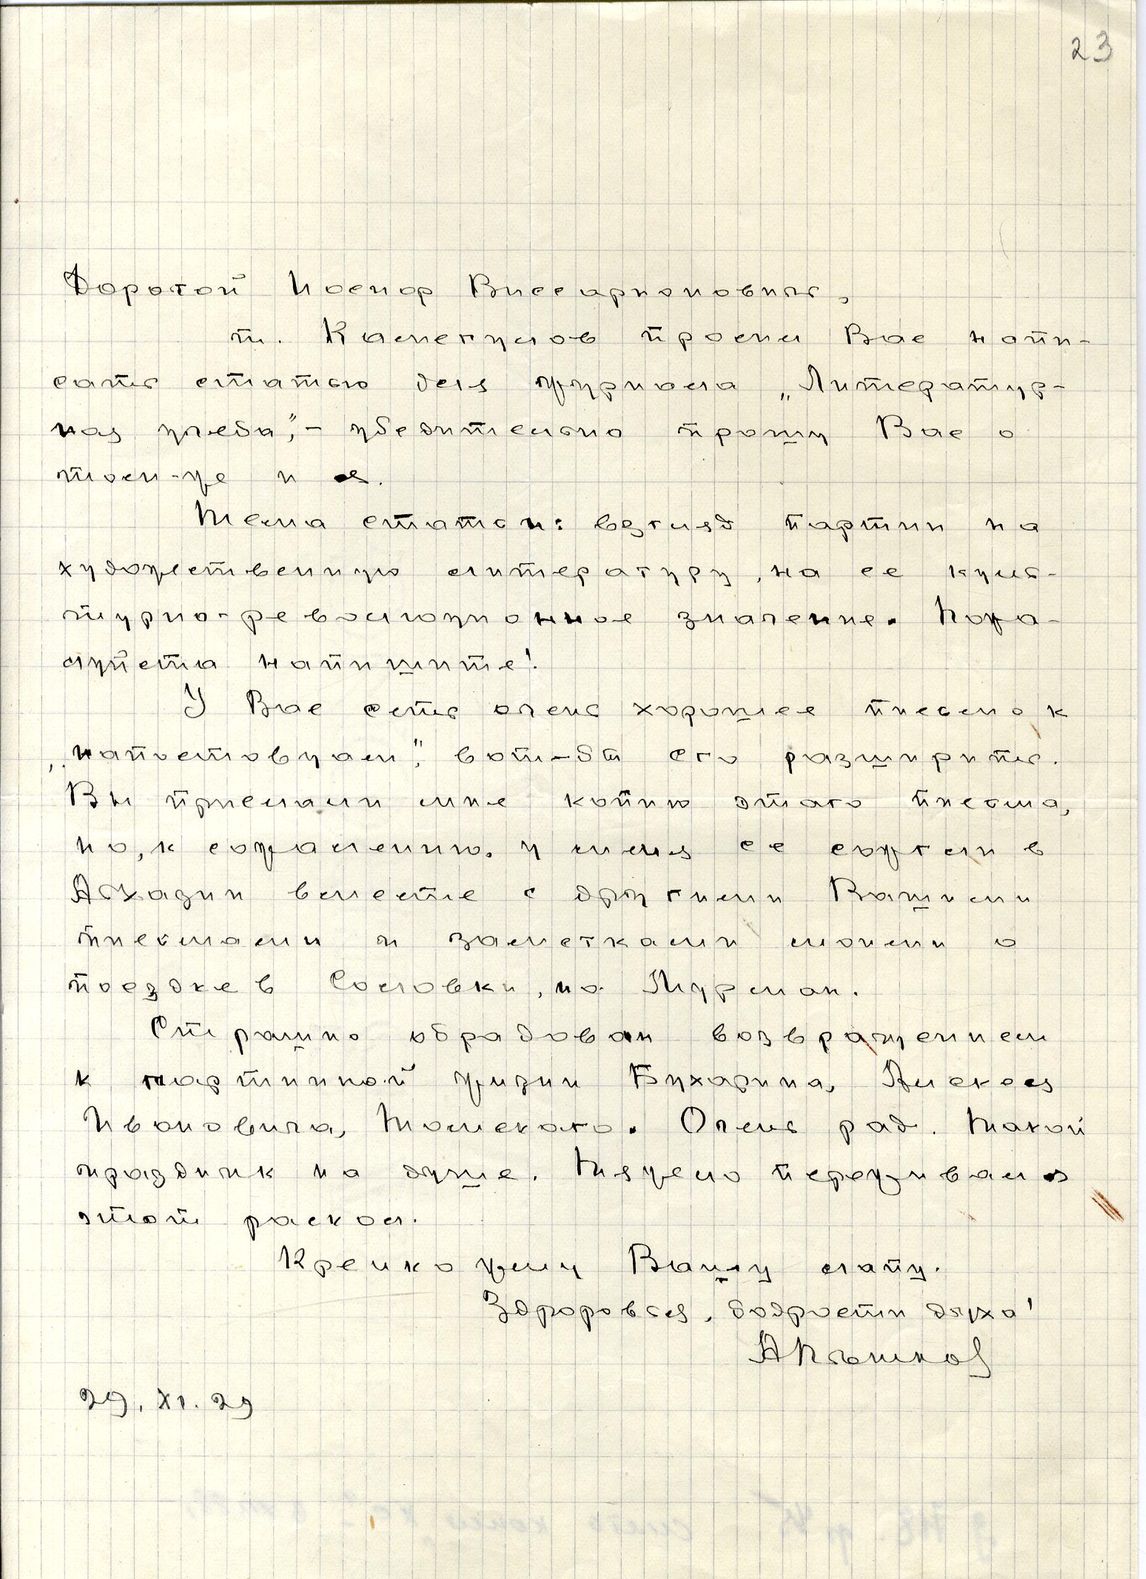 23
Дорогой Иосиф Виссарионович,
т. Камегулов просил Вас напи-
сать статью для журнала „Литератур-
ная учеба“, – убедительно прошу Вас о
том-же и я.
Тема статьи: взгляд партии на
художественную литературу, на ее куль-
турно-революционное значение. Пожа-
луйста напишите!
У Вас есть очень хорошее письмо к
„напостовцам“, вот-бы его разширить.
Вы присылали мне копию этого письма,
но, к сожалению, у меня ее сожгли в
Абхазии вместе с другими Вашими
письмами и заметками моими о
поездке в Соловки, на Мурман.
Страшно обрадован возвращением
к партийной жизни Бухарина, Алексея
Ивановича, Томского. Очень рад. Такой
праздник на душе. Тяжело переживал я
этот раскол.
Крепко жму Вашу лапу.
Здоровья, бодрости духа!
А Пешков
29. XI. 29